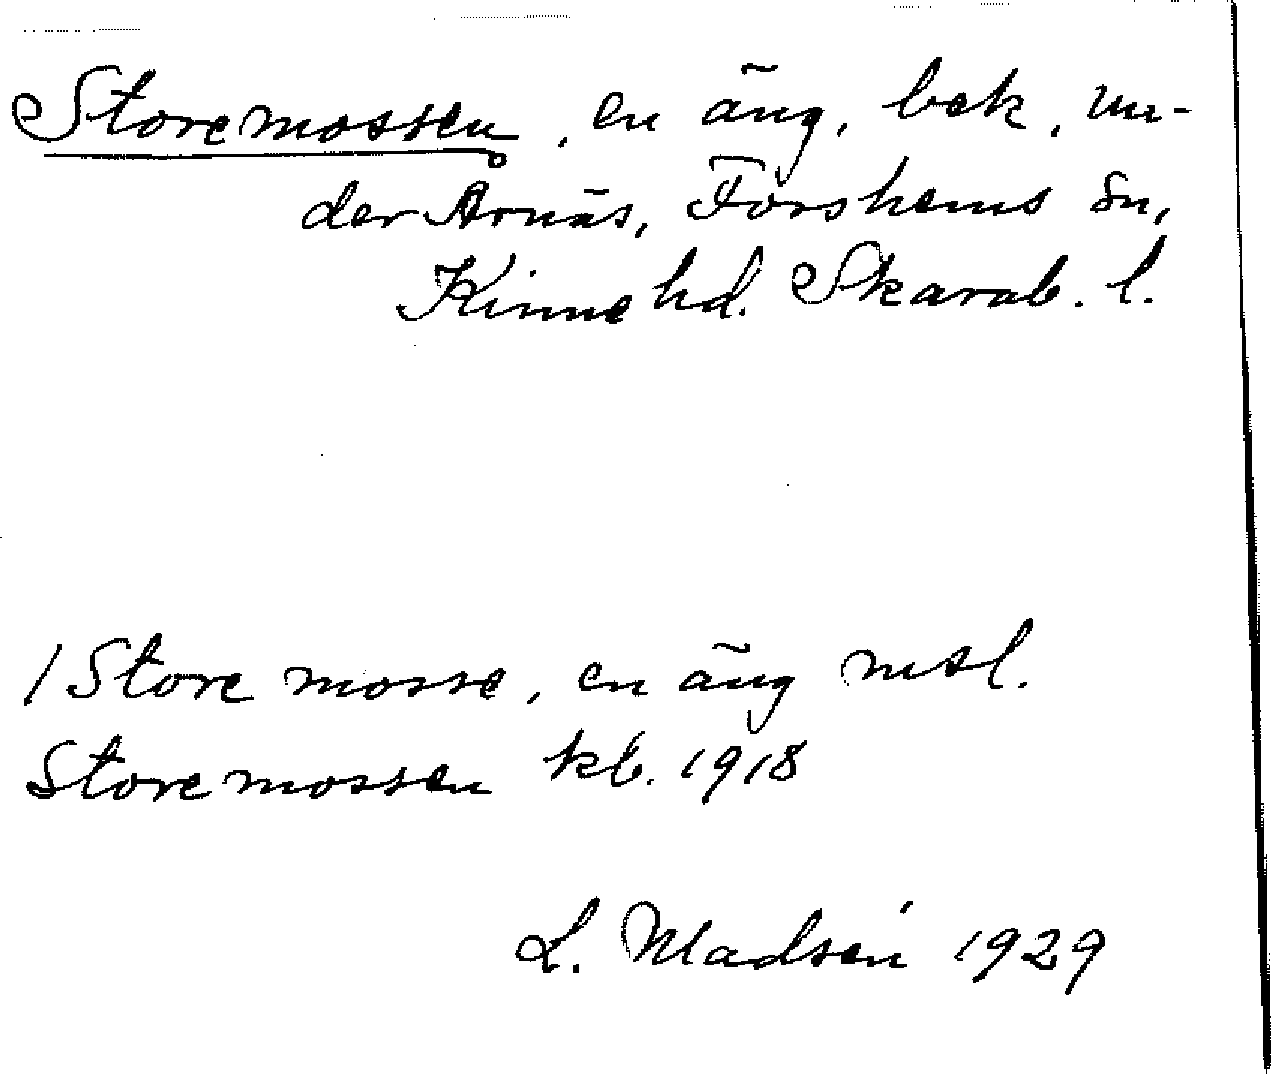 Storemossen, en äng, bek. un-
der Årnäs, Forshems sn,
Kinne hd. Skarab. l.
/ Store mosse, en äng msl.
Storemossen kb. 1918
L. Madsén 1929